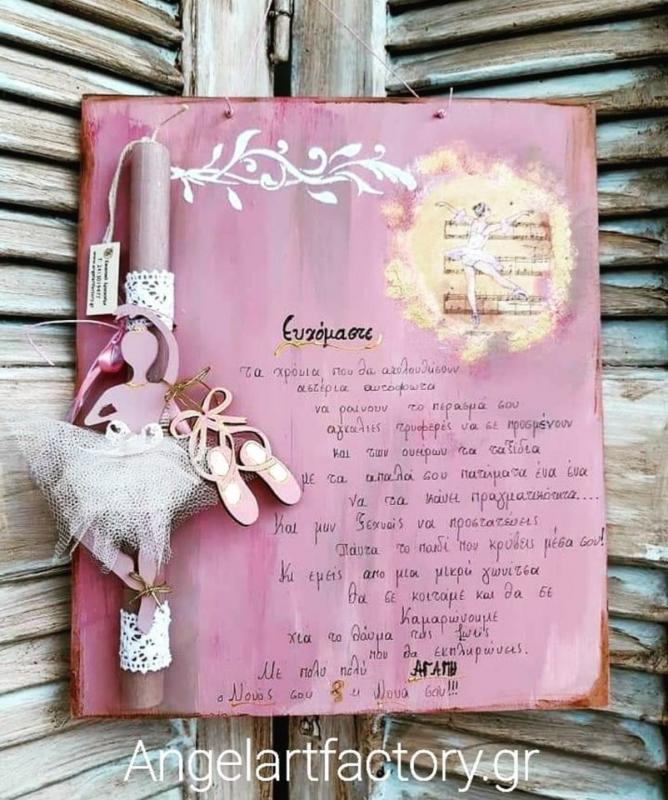 Ευχόμαστε
τα χρόνια που θα ακολουθήσουν
αστέρια αυτόφωτα
να ραινουν το περασμά σου
αγκαλιές τρυφερές να σε προσμένουν
και των ονείρων τα ταξίδια
με τα απαλά σου πατήματα ένα ένα
να τα κάνει πραγματικότητα....
Και μην ξεχνάς να προστατεύεις
Πάντα το παιδί που κρύβεις μέσα σου!
Κι εμείς απο μια μικρή γωνίτσα
θα σε κοιτάμε και θα σε
Καμαρώνουμε
για το θαύμα της ζωής
που θα εκπληρώνεις.
Με πολυ πολύ ΑΓΑΠΗ
ο Νονός σου & η Νονά σου!!!
Angelartfactory.gr